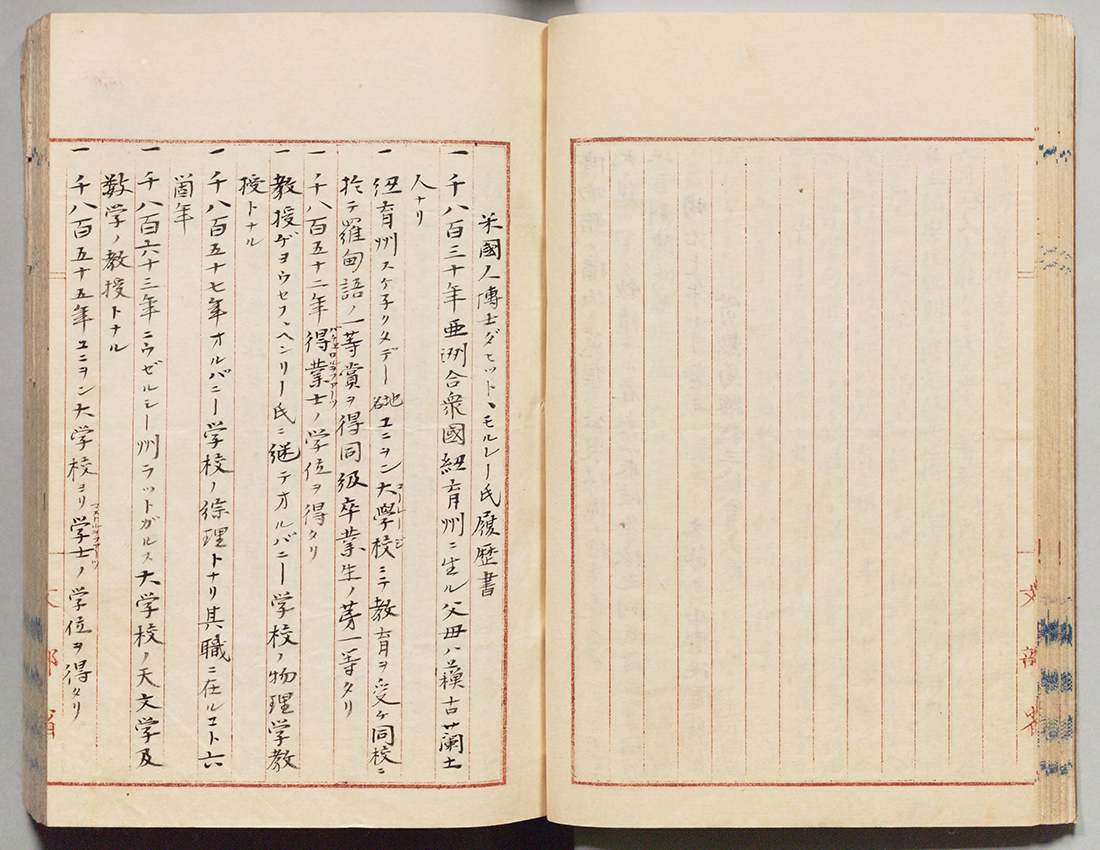 米國人博士ダヒット、モルレー氏履歴書
一 千八百三十年亜洲合衆國紐育州ニ生ル父母ハ蘓古蘭土
人ナリ
一 紐育州スケ子クタデー地名ユニヲン大學校コルレージニテ教育ヲ受ケ同校ニ
於テ羅甸語ノ一等賞ヲ得同級卒業生ノ第一等タリ
一 千八百五十二年得業士バチロルヲフアーツノ学位ヲ得タリ
一 教授ゲヨウセフ、ヘンリー氏ニ継テオルバニー学校ノ物理学教
授トナル
一 千八百五十七年オルバニー学校ノ綜理トナリ其職ニ在ルコト六
箇年
一 千八百六十三年ニウゼルシー州ラットガルス大学校ノ天文学及
数学ノ教授トナル
一 千八百五十五年ユニヲン大学校ヨリ学士マストルヲフアーツノ学位ヲ得タリ
文部省